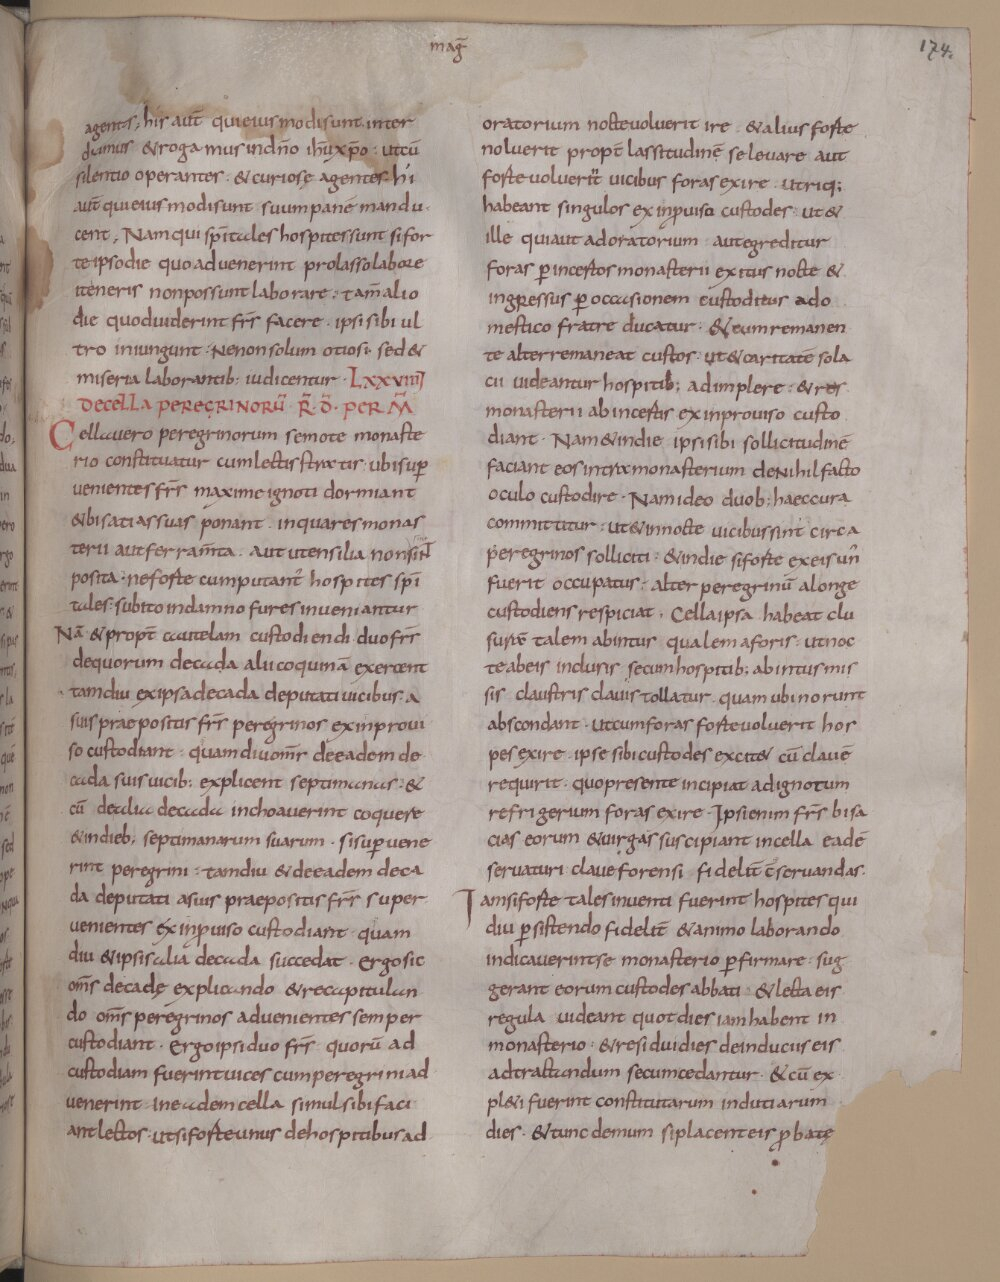 mag̅
174.
agentes; his aut̅ qui eiusmodi sunt inter
dicimus · & rogamus in dn̅o ih̅u xp̅o · ut cu̅
silentio operantes · & curiose agentes · hi
aut̅ qui eiusmodi sunt suum pane̅ mandu·
cent; Nam qui sp̅itales hospites sunt si for
te ipso die quo advenerint pro lasso labore
iteneris non possunt laborare · tam̅ alio
die quod viderint fr̅s facere · ipsi sibi ul
tro iniungunt · Ne non solum otiosi · sed &
miseria laborantib; iudicentur · LXXVIIII
De cella peregrinoru̅ R̅ D̅ per M̅
Cella vero peregrinorum semote monaste
rio constituatur cum lectis stratis · ubi sup̅
venientes fr̅s maxime ignoti dormiant
& bisatias suas ponant · in qua res monas
terii aut ferram̅ta · aut utensilia non sint
posita · ne forte cum putant̅ hospites sp̅i
tales · subito in damno fures inveniantur
Na̅ & propt̅ cautelam custodiendi duo fr̅s
de quorum decada alii coquina̅ exercent
tamdiu ex ipsa decada deputati vicibus a
suis praepositis fr̅s peregrinos ex inprovi
so custodiant · quamdiu om̅s de eadem de
cada suis vicib; explicent septimanas · &
cu̅ de alia decada inchoaverint coquere
& in dieb; septimanarum suarum · si sup̅vene
rint peregrini · tamdiu & de eadem deca
da deputati a suis praepositis fr̅s super
venientes ex inp̅viso custodiant · quam
diu & ipsis alia decada succedat · Ergo sic
om̅s decade explicando & recapitulan
do om̅s peregrinos advenientes semper
custodiant · Ergo ipsi duo fr̅s quoru̅ ad
custodiam fuerint vices cum peregrini ad
venerint in eadem cella simul sibi faci
ant lectos · ut si forte unus de hospitibus ad
oratorium nocte voluerit ire · & alius forte
noluerit propt̅ lassitudine̅ se levare aut
forte voluerit̅ vicibus foras exire · utriq;
habeant singulos ex inp̅viso custodes · ut &
ille qui aut ad oratorium · aut egreditur
foras p̅ incertos monasterii exitus nocte &
ingressus p̅ occasionem custoditus a do
mestico fratre ducatur · & cum remanen
te alter remaneat custos · ut & caritate̅ sola
cii videantur hospitib; adimplere · & res
monasterii ab incertis ex inproviso custo
diant · Nam & in die ipsi sibi sollicitudine̅
faciant eos intra monasterium de nihil facto
oculo custodire · Nam ideo duob; haec cura
committitur · ut & in nocte vicibus sint circa
peregrinos solliciti · & in die si forte ex eis un̅
fuerit occupatus · alter peregrinu̅ a longe
custodiens respiciat · Cella ipsa habeat clu
sura̅ talem ab intus qualem a foris · ut noc
te ab eis inclusis secum hospitib; ab intus mis
sis claustris clavis tollatur · quam ubi norunt
abscondant · ut cum foras forte voluerit hos
pes exire · ipse sibi custodes excitet cu̅ clave̅
requirit · quo presente incipiat ad ignotum
refrigerium foras exire · Ipsi enim fr̅s bisa
cias eorum & virgas suscipiant in cella eade̅
servaturi clave forensi fidelit̅ c̅servandas·
Iam si forte tales inventi fuerint hospites qui
diu p̅sistendo fidelit̅ & animo laborando
indicaverint se monasterio p̅firmare · sug
gerant eorum custodes abbati · & lecta eis
regula videant quot dies iam habent in
monasterio · & residui dies de induciis eis
ad tractandum secum cedantur · & cu̅ ex
pl&i fuerint constitutarum indutiarum
dies · & tunc demum si placent eis p̅batę